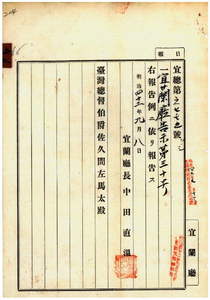 日報
宜總第七七七號ノ二
一宜蘭廳告示第三十號
右報告例ニ依リ報告ス
明治四十三年九月八日
宜蘭廳長中田直溫
臺灣總督伯爵佐久間左馬太殿
宜蘭廳